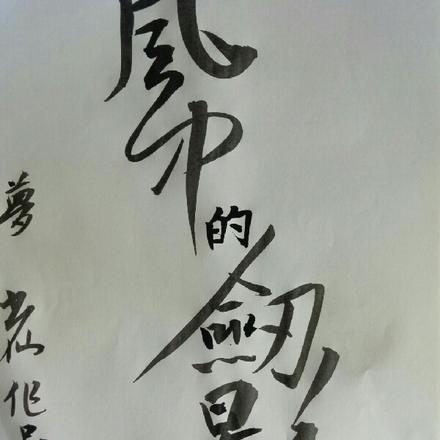 風中的劍影
夢 出仙作品